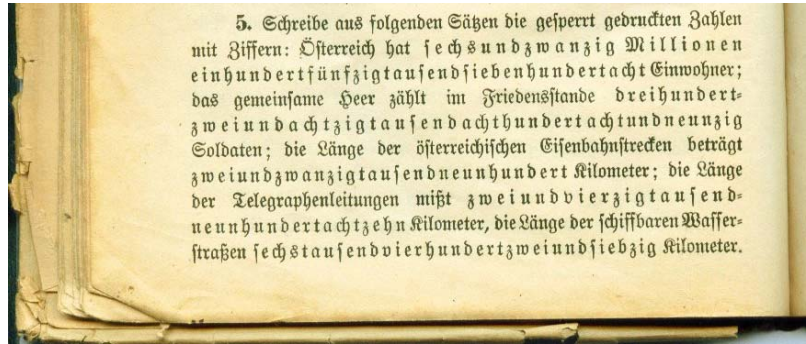 5. Schreibe aus folgenden Sätzen die gesperrt gedruckten Zahlen
mit Ziffern: Österreich hat sechsundzwanzig Millionen
einhundertfünfzigtausendsiebenhundertacht Einwohner;
das gemeinsame Heer zählt im Friedensstande dreihundert-
zweiundachtzigtausendachthundertachtundneunzig
Soldaten; die Länge der österreichischen Eisenbahnstrecken beträgt
zweiundzwanzigtausendneunhundert Kilometer; die Länge
der Telegraphenleitungen mißt zweiundvierzigtausend-
neunhundertachtzehn Kilometer, die Länge der schiffbaren Wasser-
straßen sechstausendvierhundertzweiundsiebzig Kilometer.